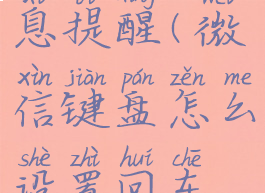 息提醒(微
xìn jiàn pán zěn me
信键盘怎么
shè zhì huí chē
设置回车